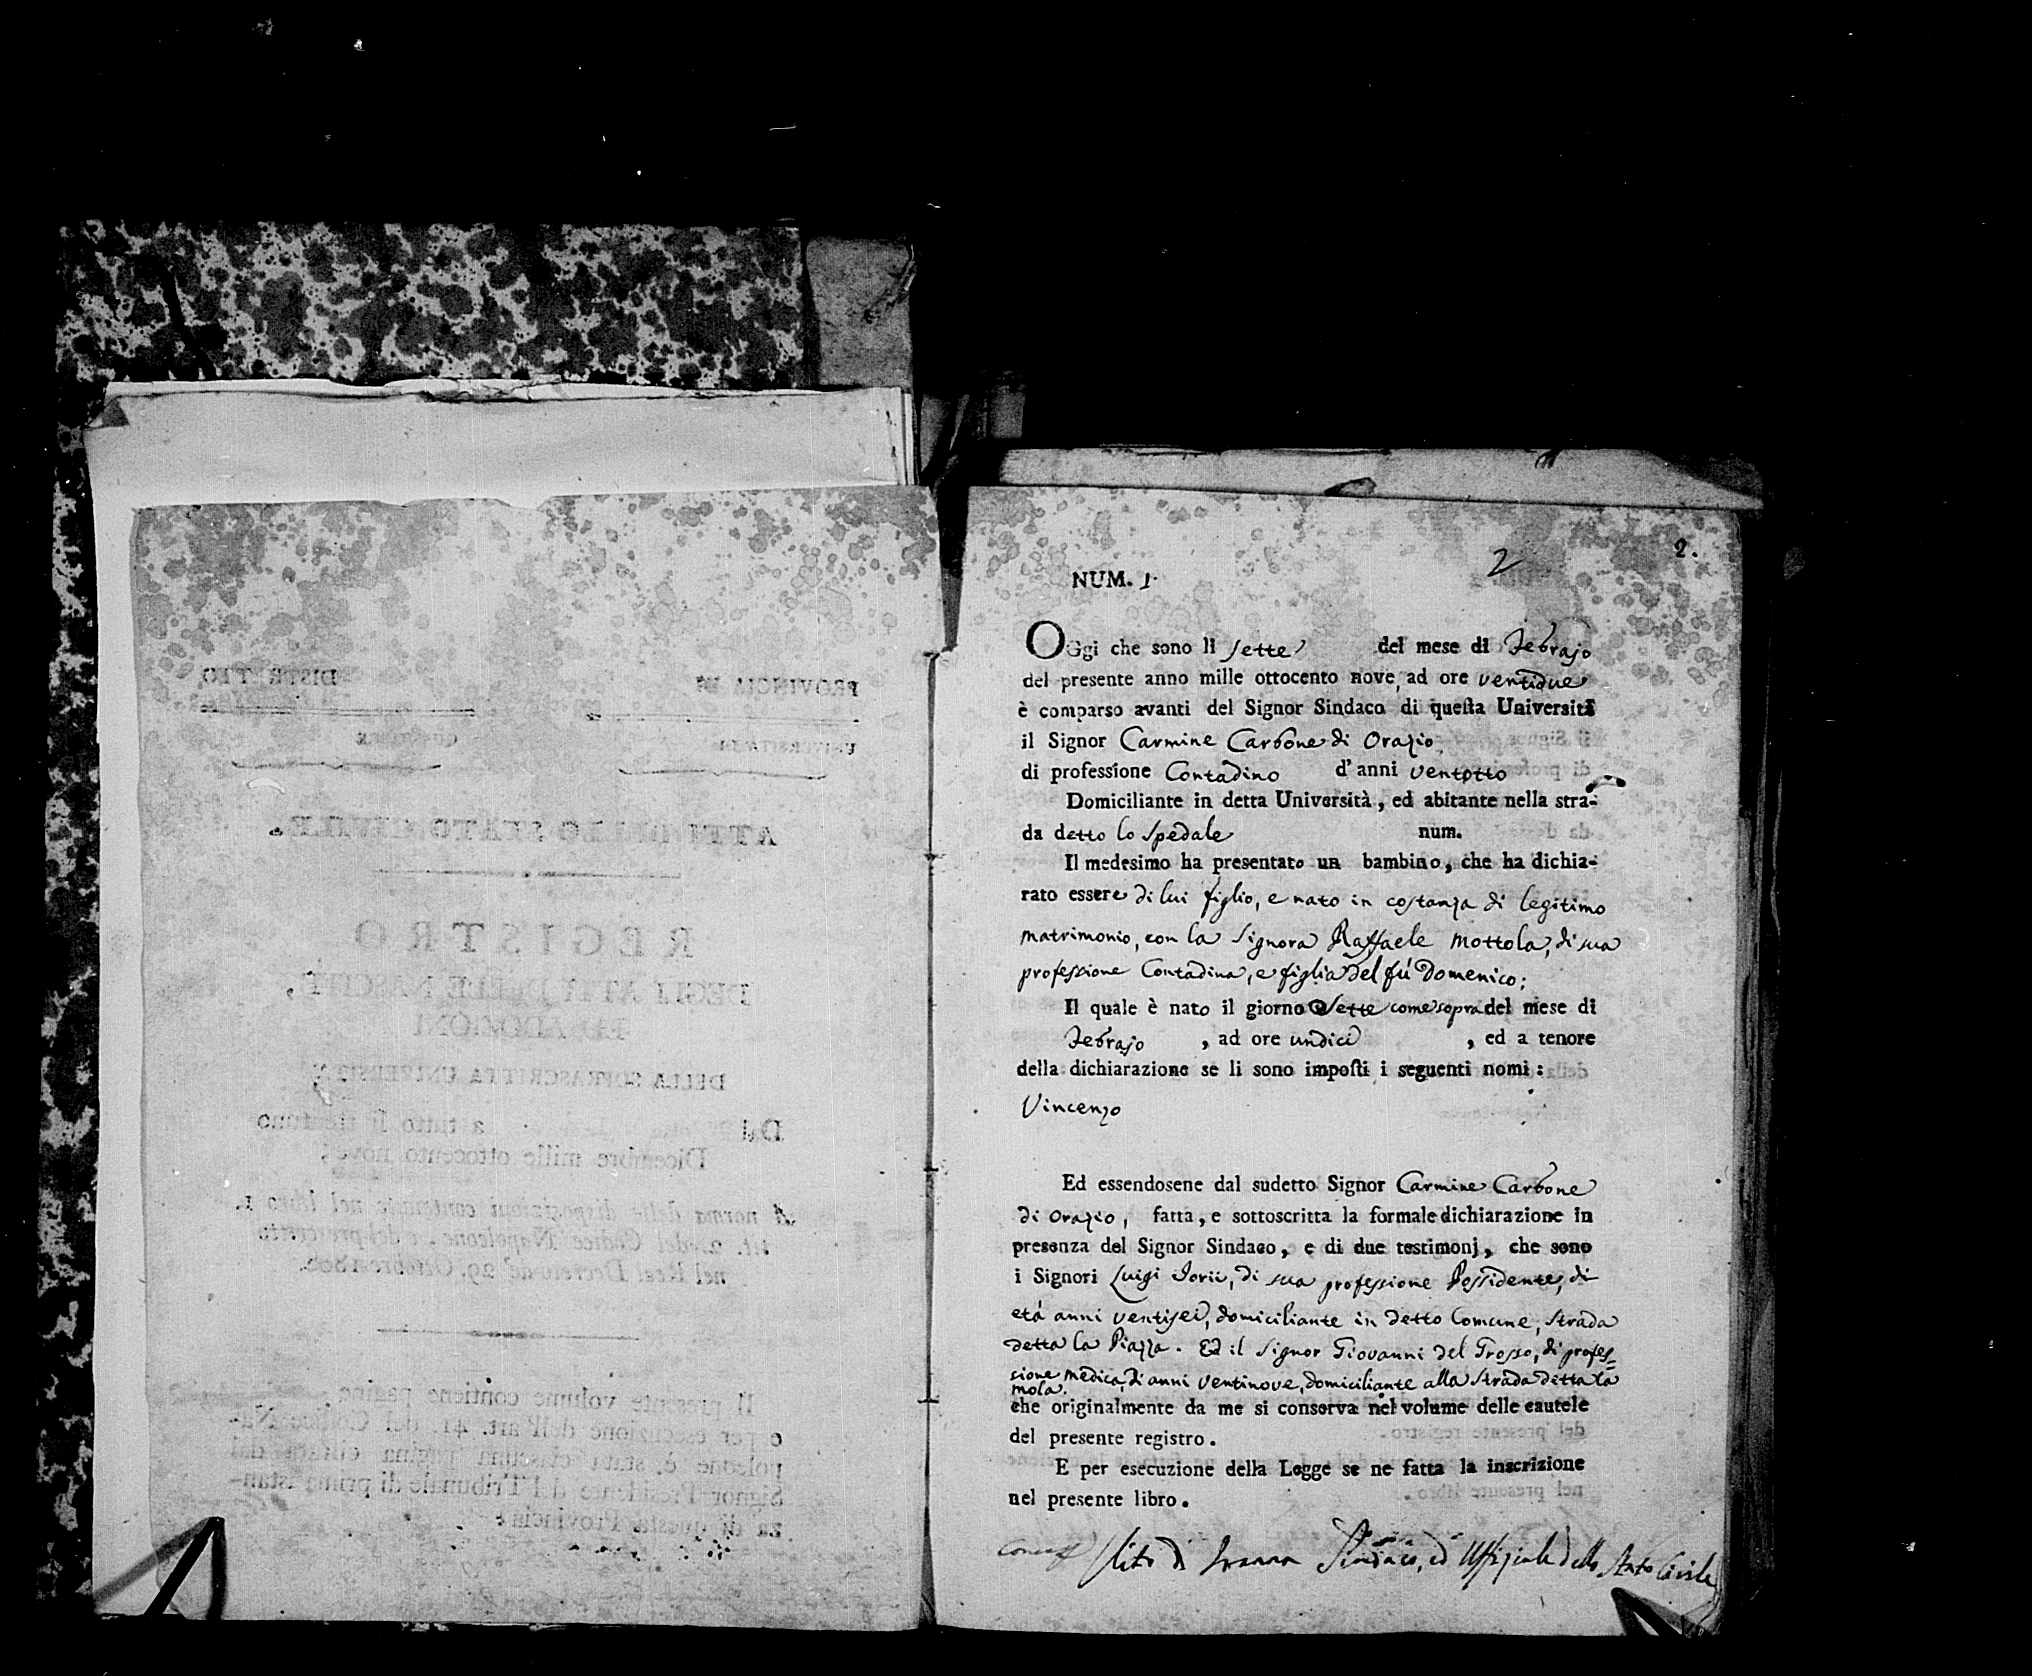 2
2.
NUM. 1.
Oggi che sono li sette del mese di Febrajo
del presente anno mille ottocento nove, ad ore ventidue
è comparso avanti del Signor Sindaco di questa Università
il Signor Carmine Carbone di Orazio,
di professione Contadino d'anni ventotto
Domiciliante in detta Università, ed abitante nella stra-
da detto lo Spedale num.
Il medesimo ha presentato un bambino, che ha dichia-
rato essere di lui figlio, e nato in costanza di legitimo
matrimonio, con la Signora Raffaele Mottola, di sua
professione Contadina, e figlia del fù Domenico;
Il quale è nato il giorno Sette come sopra del mese di
Febrajo, ad ore undici, ed a tenore
della dichiarazione se li sono imposti i seguenti nomi:
Vincenzo
Ed essendosene dal sudetto Signor Carmine Carbone
di Orazio, fatta, e sottoscritta la formale dichiarazione in
presenza del Signor Sindaco, e di due testimonj, che sono
i Signori Luigi Iorii, di sua professione Possidente, di
età anni ventisei, domiciliante in detto Comune, strada
detta la Piazza. Ed il Signor Giovanni del Grosso, di profes=
sione medica, di anni ventinove, domiciliante alla strada detta la
mola.
che originalmente da me si conserva nel volume delle cautele
del presente registro.
E per esecuzione della Legge se ne fatta la inscrizione
nel presente libro.
Sindaco, ed Uffiziale dello Stato Civile
PROVINCIA DI DISTRETTO
UNIVERSITÀ DI
ATTI DELLO STATO CIVILE.
REGISTRO
DEGLI ATTI DELLE NASCITE,
ED ADOZIONI
DELLA SOPRASCRITTA UNIVERSITÀ
Dal a tutto li trentuno
Dicembre mille ottocento nove;
A norma delle disposizioni contenute nel libro 1.
tit. 2. del Codice Napoleone, e del prescritto
nel Real Decreto de' 29. Ottobre 1808.
Il presente volume contiene pagine
e per esecuzione dell'art. 41. del Codice Na-
poleone è stata ciascuna pagina cifrata dal
Signor Presidente del Tribunale di prima istan-
za di questa Provincia